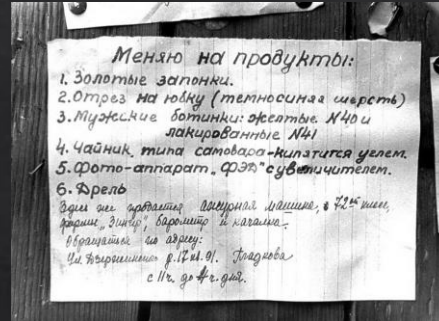 Меняю на продукты:
1. Золотые запонки.
2. Отрез на юбку (темносиняя шерсть)
3. Мужские ботинки: желтые N40 и
лакированные N41
4. Чайник типа самовара-кипятится углем.
5. Фото-аппарат „ФЭД" с увеличителем.
6. Дрель
Здесь же продается ажурная машина,
фирмы „Зингер", барометр и качалка.
Обращаться по адресу:
Ул. Дзержинского д. 17 кв. 91. Гладкова
с 11ч. до 4ч. дня.